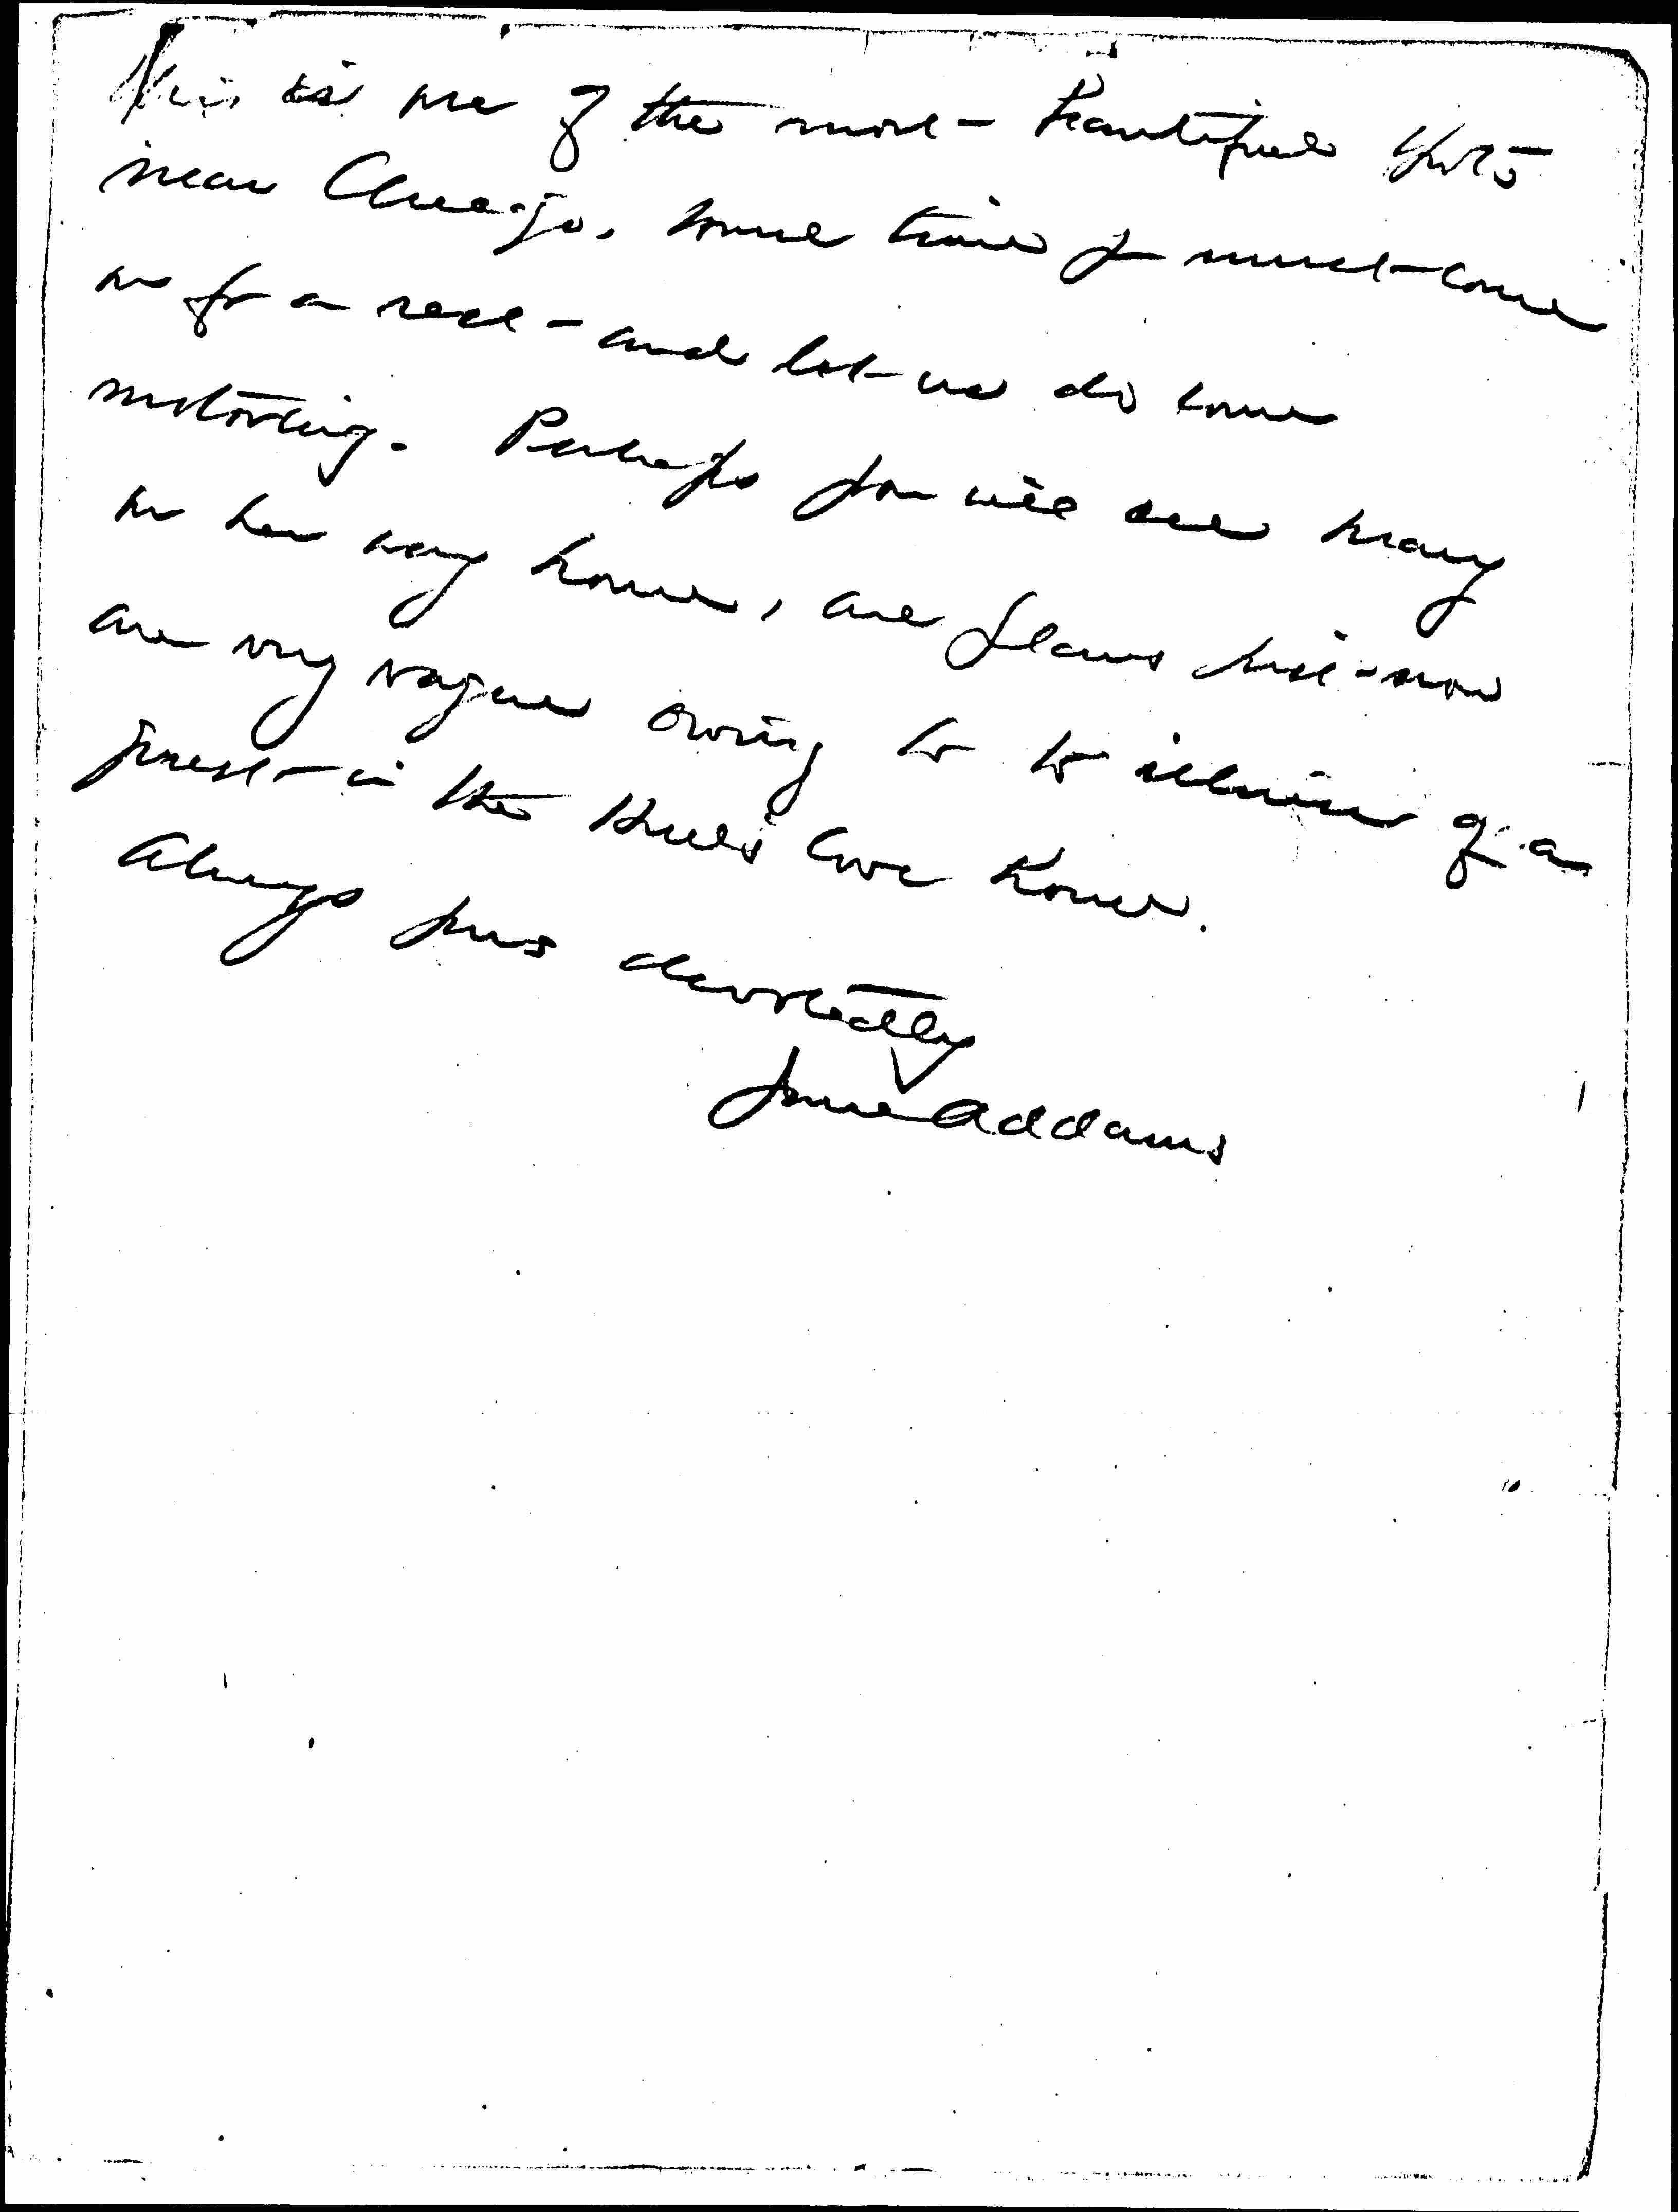 This is one of the most beautiful spots
near Chicago. Some time you must come
on for a rest – and let us do some
motoring. Perhaps you will see Mary
on her way home, all plans just now
are very vague owing to to illness of a
guest in the Hull's Cove house.
Always yours devotedly
Jane Addams